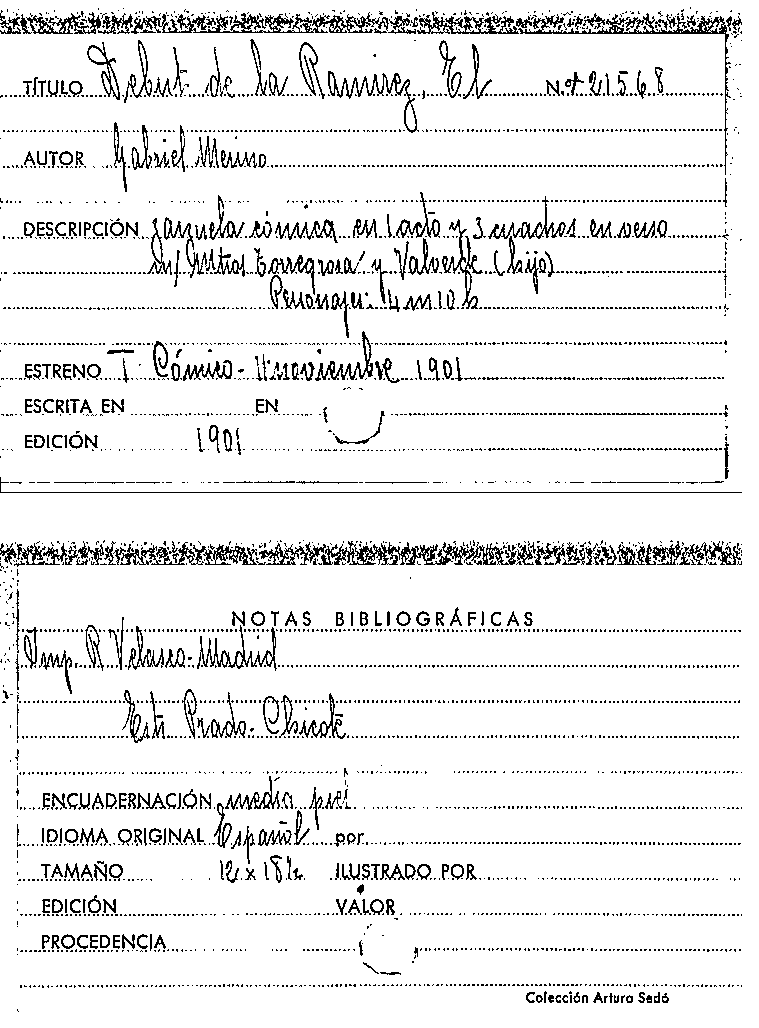 TÍTULO Debut de la Ramirez, El N.º 21568
AUTOR Gabriel Merino
DESCRIPCIÓN zarzuela cómica en 1 acto y 3 cuadros en verso
m/ Mtros Torregrosa y Valverde (hijo)
Personajes: 4 m 10 h
ESTRENO T. Cómico - 11 noviembre 1901
ESCRITA EN EN
EDICIÓN 1901
NOTAS BIBLIOGRÁFICAS
Imp. R Velasco - Madrid
Estr. Prado - Chicote
ENCUADERNACIÓN media piel
IDIOMA ORIGINAL Español por
TAMAÑO 12 x 18½ ILUSTRADO POR
EDICIÓN VALOR
PROCEDENCIA
Colección Arturo Sedó